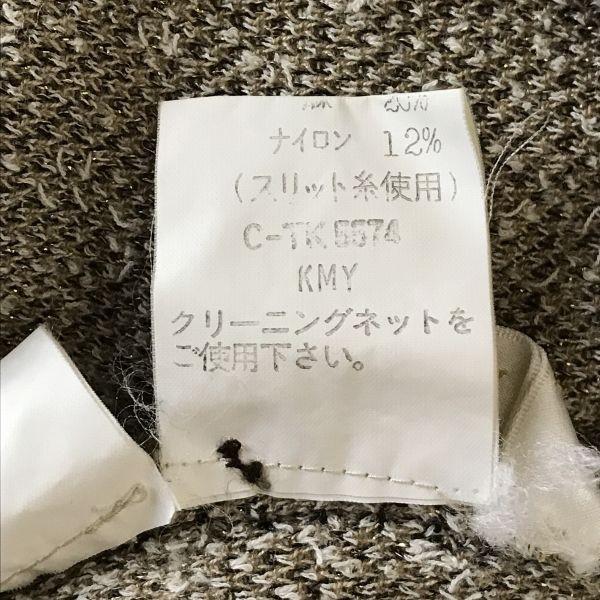 ナイロン 12%
(スリット糸使用)
C-TK5574
KMY
クリーニングネットを
ご使用下さい。